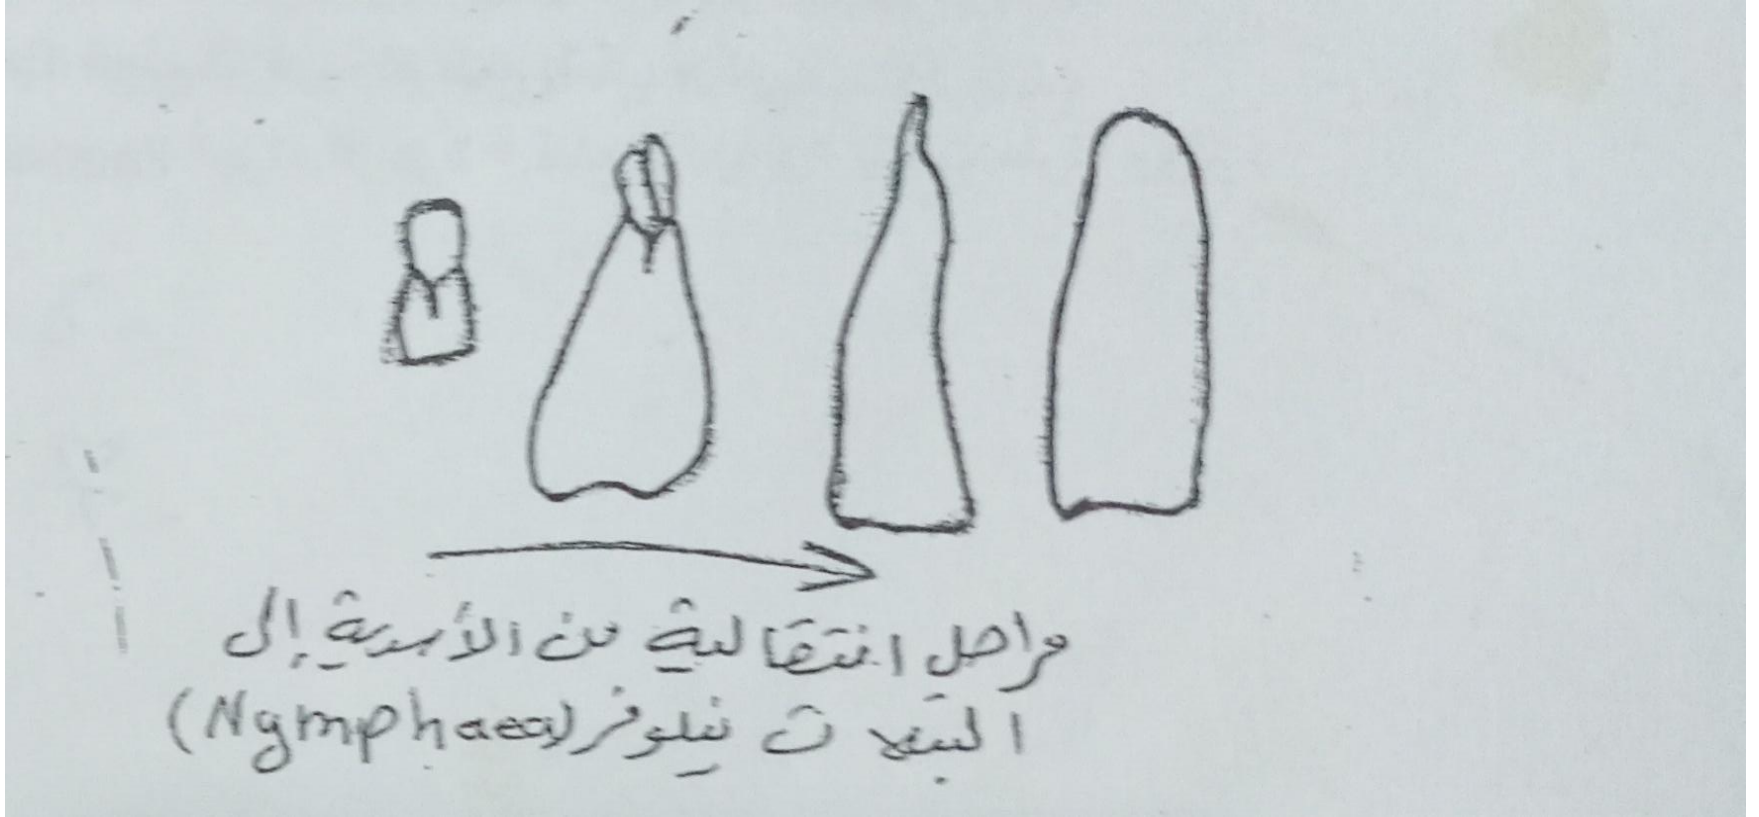 مراحل انتقالية من الأسدية إلى
البتلات نيلوفر (Nymphaea)